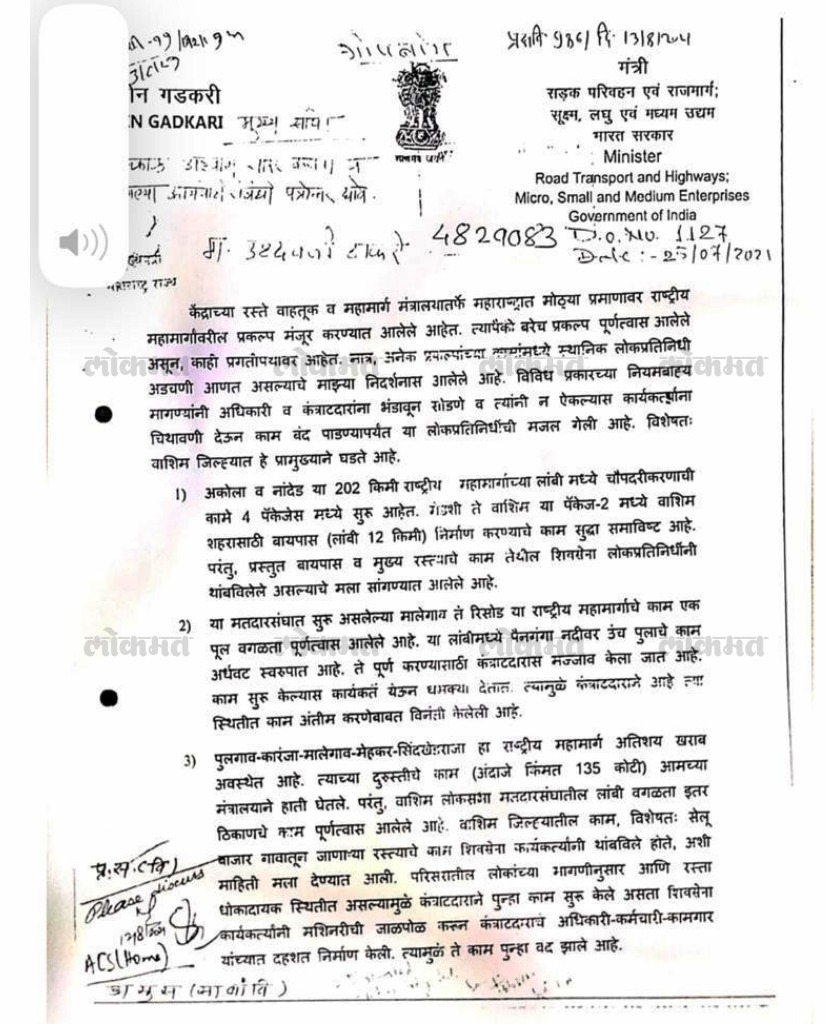 गोपनीय
प्रशांत 986/ दि. 13/8/२०२१
मंत्री
सड़क परिवहन एवं राजमार्ग;
सूक्ष्म, लघु एवं मध्यम उद्यम
भारत सरकार
Minister
Road Transport and Highways;
Micro, Small and Medium Enterprises
Government of India
गडकरी
GADKARI
मुख्य सचिव
4829083 D.O.No. 1127
Date :- 25/07/2021
मा. उद्धवजी ठाकरे
महाराष्ट्र राज्य
केंद्राच्या रस्ते वाहतूक व महामार्ग मंत्रालयातर्फे महाराष्ट्रात मोठ्या प्रमाणावर राष्ट्रीय
महामार्गावरील प्रकल्प मंजूर करण्यात आलेले आहेत. त्यापैकी बरेच प्रकल्प पूर्णत्वास आलेले
असून, काही प्रगतीपथावर आहेत. मात्र, अनेक प्रकल्पांच्या कामांमध्ये स्थानिक लोकप्रतिनिधी
अडचणी आणत असल्याचे माझ्या निदर्शनास आलेले आहे. विविध प्रकारच्या नियमबाह्य
मागण्यांनी अधिकारी व कंत्राटदारांना भंडावून सोडणे व त्यांनी न ऐकल्यास कार्यकर्त्यांना
चिथावणी देऊन काम बंद पाडण्यापर्यंत या लोकप्रतिनिधींची मजल गेली आहे. विशेषतः
वाशिम जिल्ह्यात हे प्रामुख्याने घडते आहे.
1) अकोला व नांदेड या 202 किमी राष्ट्रीय महामार्गाच्या लांबी मध्ये चौपदरीकरणाची
कामे 4 पॅकेजेस मध्ये सुरू आहेत. मेडशी ते वाशिम या पॅकेज-2 मध्ये वाशिम
शहरासाठी बायपास (लांबी 12 किमी) निर्माण करण्याचे काम सुद्धा समाविष्ट आहे.
परंतु, प्रस्तुत बायपास व मुख्य रस्त्याचे काम तेथील शिवसेना लोकप्रतिनिधींनी
थांबविलेले असल्याचे मला सांगण्यात आलेले आहे.
2) या मतदारसंघात सुरू असलेल्या मालेगाव ते रिसोड या राष्ट्रीय महामार्गाचे काम एक
पूल वगळता पूर्णत्वास आलेले आहे. या लांबीमध्ये पैनगंगा नदीवर उंच पुलाचे काम
अर्धवट स्वरुपात आहे. ते पूर्ण करण्यासाठी कंत्राटदारास मज्जाव केला जात आहे.
काम सुरू केल्यास कार्यकर्ते येऊन धमक्या देतात. त्यामुळे कंत्राटदाराने आहे त्या
स्थितीत काम अंतीम करणेबाबत विनंती केलेली आहे.
3) पुलगाव-कारंजा-मालेगाव-मेहकर-सिंदखेडराजा हा राष्ट्रीय महामार्ग अतिशय खराब
अवस्थेत आहे. त्याच्या दुरुस्तीचे काम (अंदाजे किंमत 135 कोटी) आमच्या
मंत्रालयाने हाती घेतले. परंतु, वाशिम लोकसभा मतदारसंघातील लांबी वगळता इतर
ठिकाणचे काम पूर्णत्वास आलेले आहे. वाशिम जिल्ह्यातील काम, विशेषतः सेलू
बाजार गावातून जाणाऱ्या रस्त्याचे काम शिवसेना कार्यकर्त्यांनी थांबविले होते, अशी
माहिती मला देण्यात आली. परिसरातील लोकांच्या मागणीनुसार आणि रस्ता
धोकादायक स्थितीत असल्यामुळे कंत्राटदाराने पुन्हा काम सुरू केले असता शिवसेना
कार्यकर्त्यांनी मशिनरीची जाळपोळ करून कंत्राटदाराचे अधिकारी-कर्मचारी-कामगार
यांच्यात दहशत निर्माण केली. त्यामुळे ते काम पुन्हा बंद झाले आहे.
प्र.स.(वि)
Please discuss
ACS(Home)
लोकमत लोकमत लोकमत लोकमत
लोकमत लोकमत लोकमत लोकमत